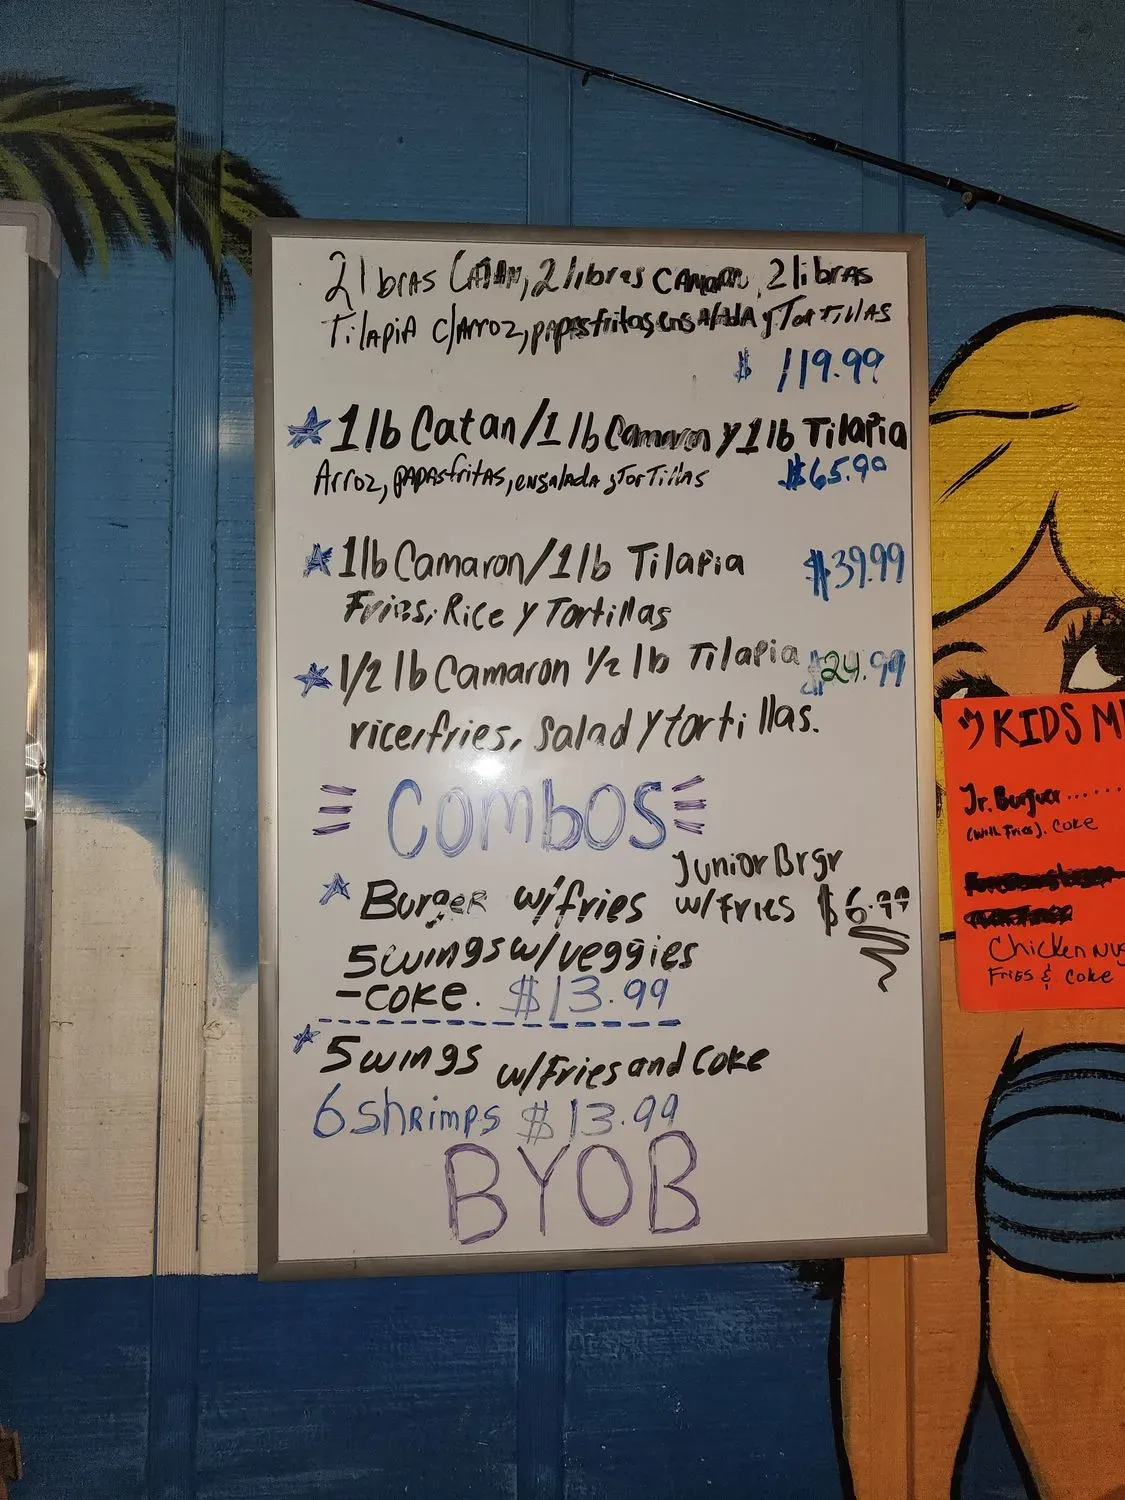 2 libras Catan, 2 libras Camaron, 2 libras
Tilapia c/Arroz, papas fritas ensalada y Tortillas
$ 119.99
1 lb Catan/1 lb Camaron y 1 lb Tilapia
Arroz, papas fritas, ensalada y Tortillas $65.99
1 lb Camaron/1 lb Tilapia $39.99
Fries, Rice y Tortillas
1/2 lb Camaron 1/2 lb Tilapia $24.99
rice, fries, salad y tortillas.
Combos
Junior Brgr
Burger w/fries w/Fries $6.99
5 wings w/veggies
-coke. $13.99
5 wings w/Fries and Coke
6 shrimps $13.99
BYOB
KIDS M
Jr. Burguer......
(with Fries). Coke
Chicken Nug
Fries & Coke